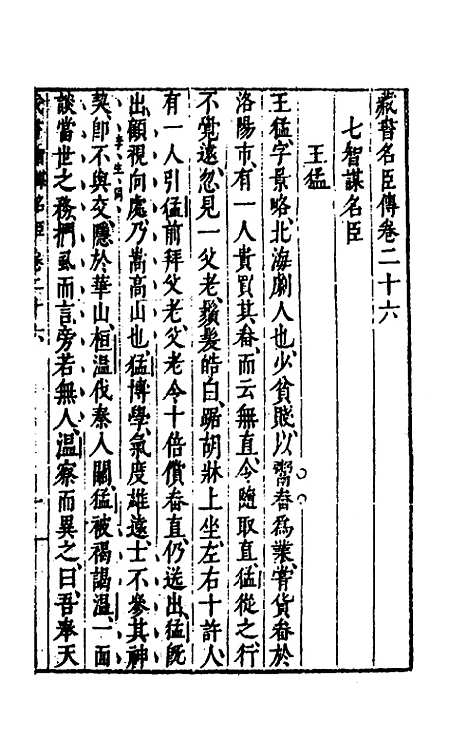 藏書名臣傳卷二十六
七智謀名臣
王猛
王猛、字景略、北海劇人也、少貧賤、以鬻畚爲業、嘗貨畚於
洛陽市、有一人貴買其畚、而云無直、令隨取直、猛從之、行
不覺遠、忽見一父老、鬚髮皓白、踞胡牀上坐、左右十許人、
有一人引猛前拜父老、父老令十倍償畚直、仍送出、猛既
出、顧視向處、乃嵩高山也、猛博學、氣度雄遠、士不參其神
契、卽不與交、隱於華山、桓溫伐秦入關、猛被褐謁溫、一面
談當世之務、捫虱而言、旁若無人、溫察而異之、曰、吾奉天